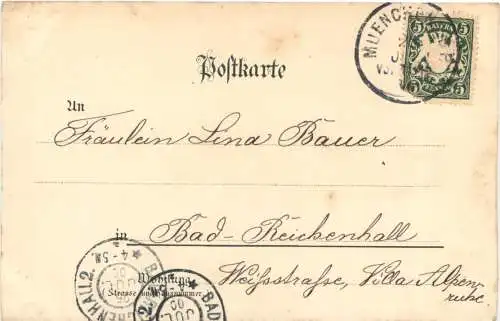 MUENCH
BAYERN
5 5
5 5
Postkarte
An
Fräulein Lina Bauer
in Bad-Reichenhall
Wohnung
(Strasse und Hausnummer)
Weissstrasse, Villa Alpen-
ruhe.
4-5N.
HENHALL 2.
JUL
00
BAD
JUL
00